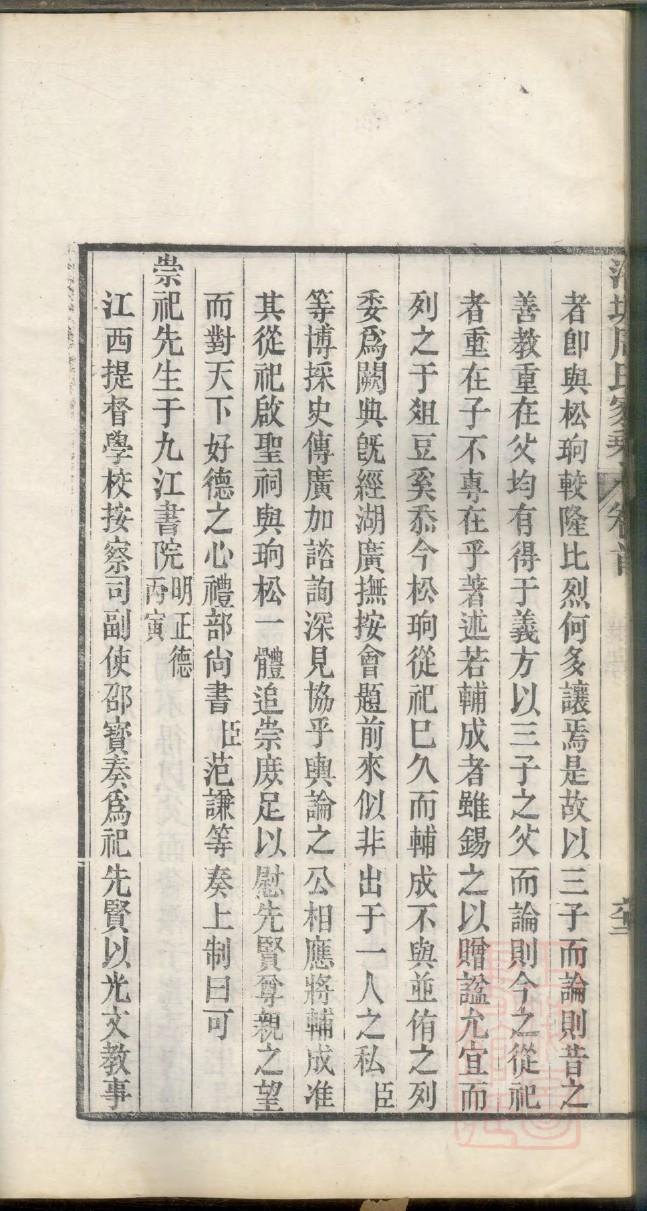 周氏家乘 卷首
者卽與松珦較隆比烈何多讓焉是故以三子而論則昔之
善教重在父均有得于義方以三子之父而論則今之從祀
者重在子不專在乎著述若輔成者雖錫之以贈諡允宜而
列之于俎豆奚忝今松珦從祀巳久而輔成不與並侑之列
委爲闕典旣經湖廣撫按會題前來似非出于一人之私臣
等博採史傳廣加諮詢深見協乎輿論之公相應將輔成准
其從祀啟聖祠與珦松一體追崇庻足以慰先賢尊親之望
而對天下好德之心禮部尚書臣范謙等奏上制曰可
崇祀先生于九江書院明正德丙寅
江西提督學校按察司副使邵寳奏爲祀先賢以光文教事